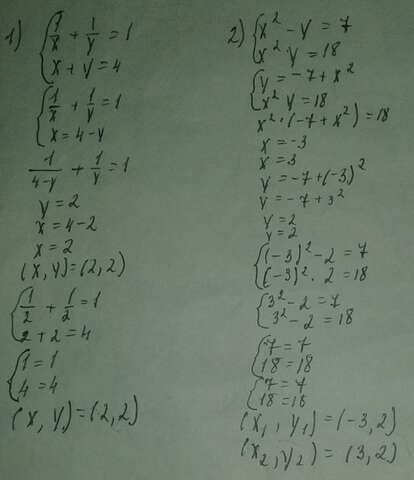 1) { 1/x + 1/y = 1
x + y = 4
{ 1/x + 1/y = 1
x = 4 - y
1/4-y + 1/y = 1
y = 2
x = 4 - 2
x = 2
(x, y) = (2, 2)
{ 1/2 + 1/2 = 1
2 + 2 = 4
{ 1 = 1
4 = 4
(x, y) = (2, 2)
2) { x² - y = 7
x² y = 18
{ y = -7 + x²
x² y = 18
x² · (-7 + x²) = 18
x = -3
x = 3
y = -7 + (-3)²
y = -7 + 3²
y = 2
y = 2
{ (-3)² - 2 = 7
(-3)² · 2 = 18
{ 3² - 2 = 7
3² - 2 = 18
{ 7 = 7
18 = 18
{ 7 = 7
18 = 18
(x₁, y₁) = (-3, 2)
(x₂, y₂) = (3, 2)